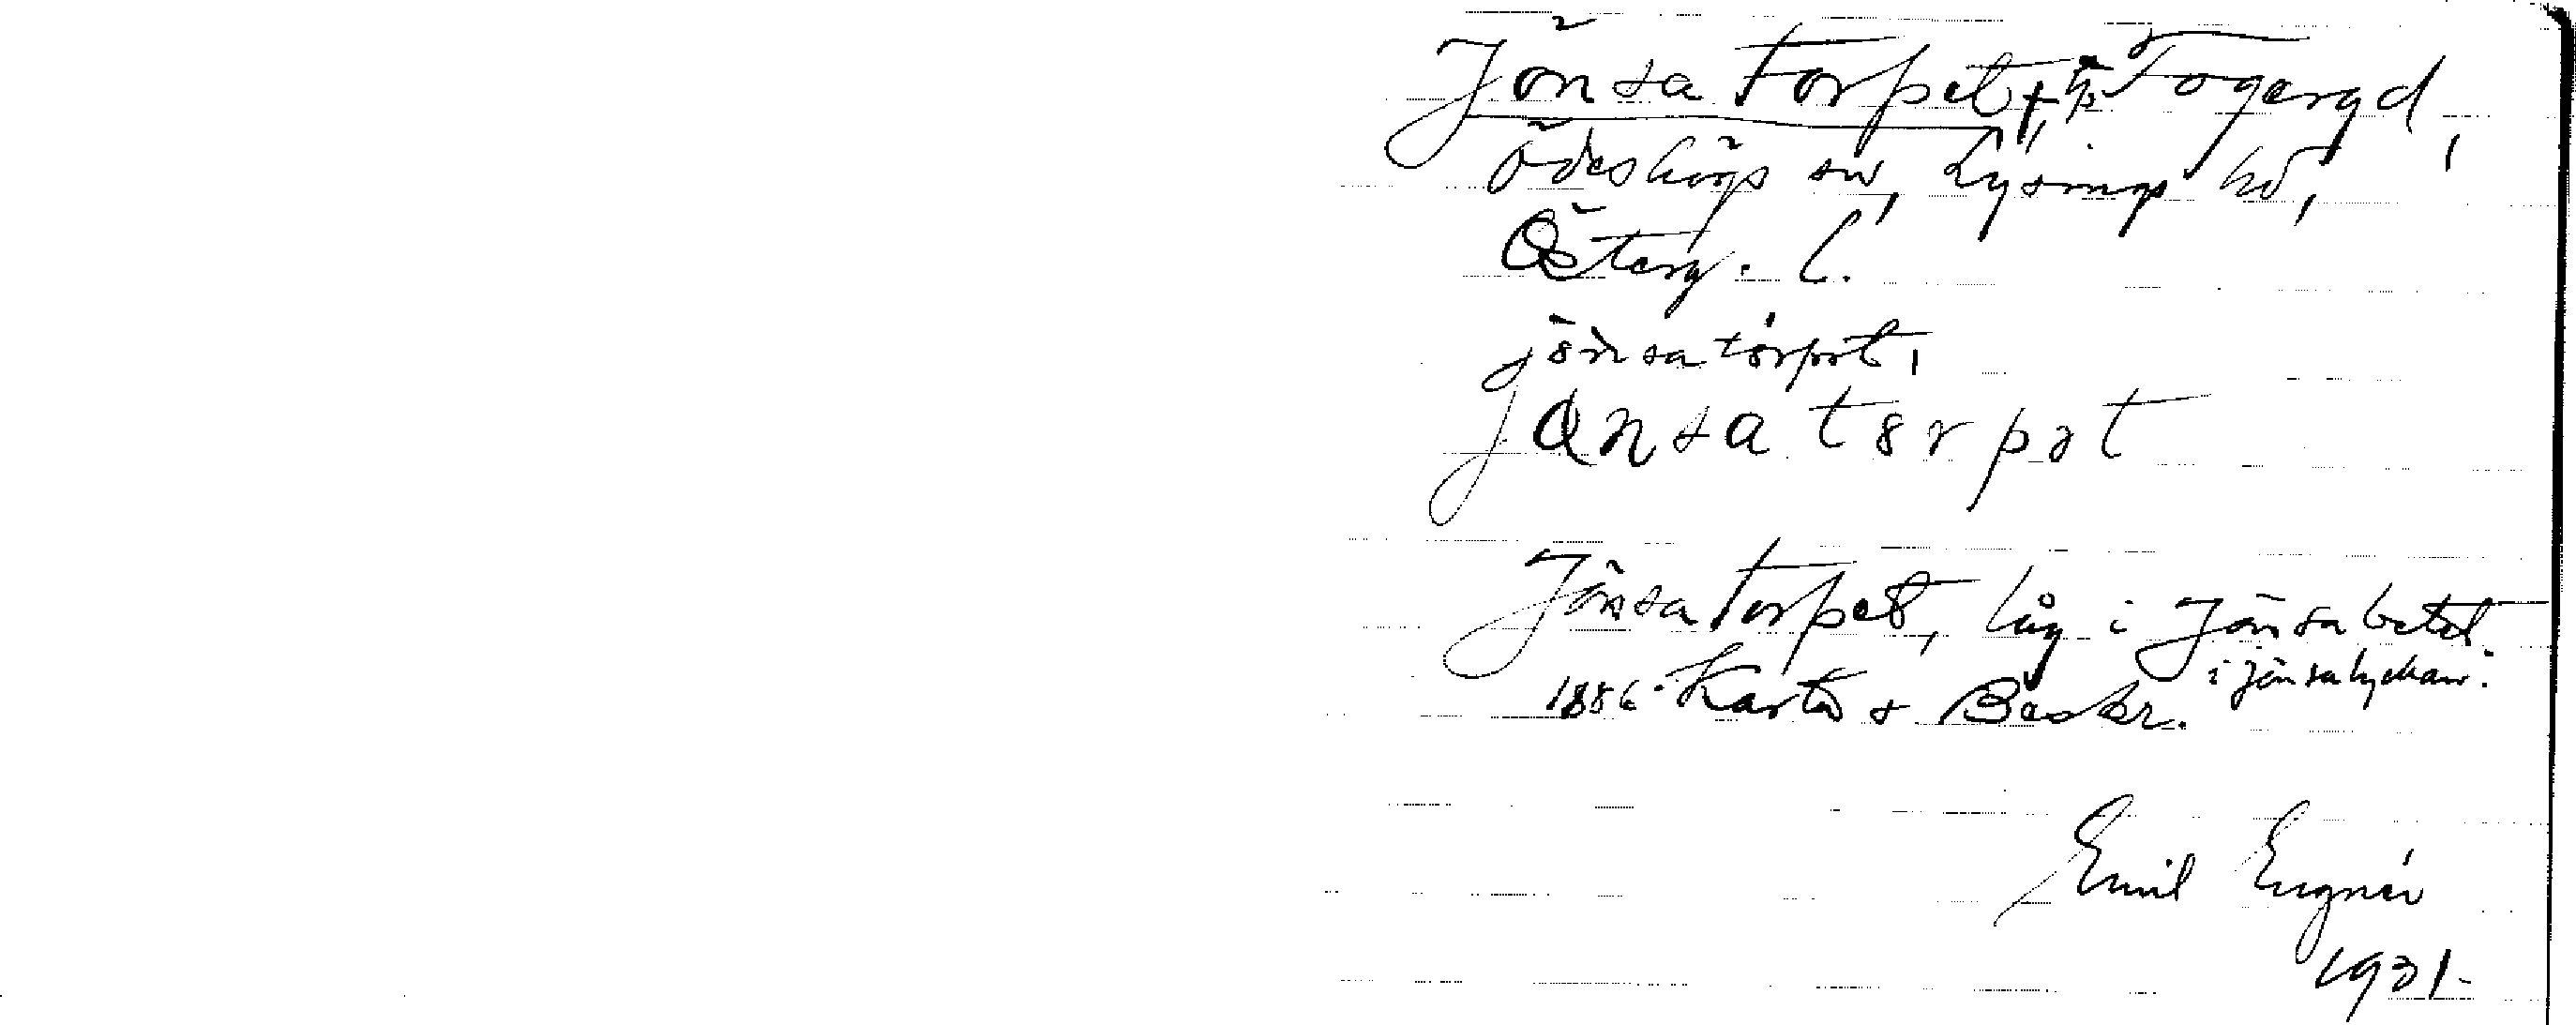 Jönsatorpet, †, på Togargd,
Ödeshögs sn, Lysings hd,
Österg. l.
jönsatorpet,
jönsatorpat
Jönsatorpet, låg i Jönsabetet
i jönsalyckan.
1886 Karta & Beskr.
Emil Engnér
1931.